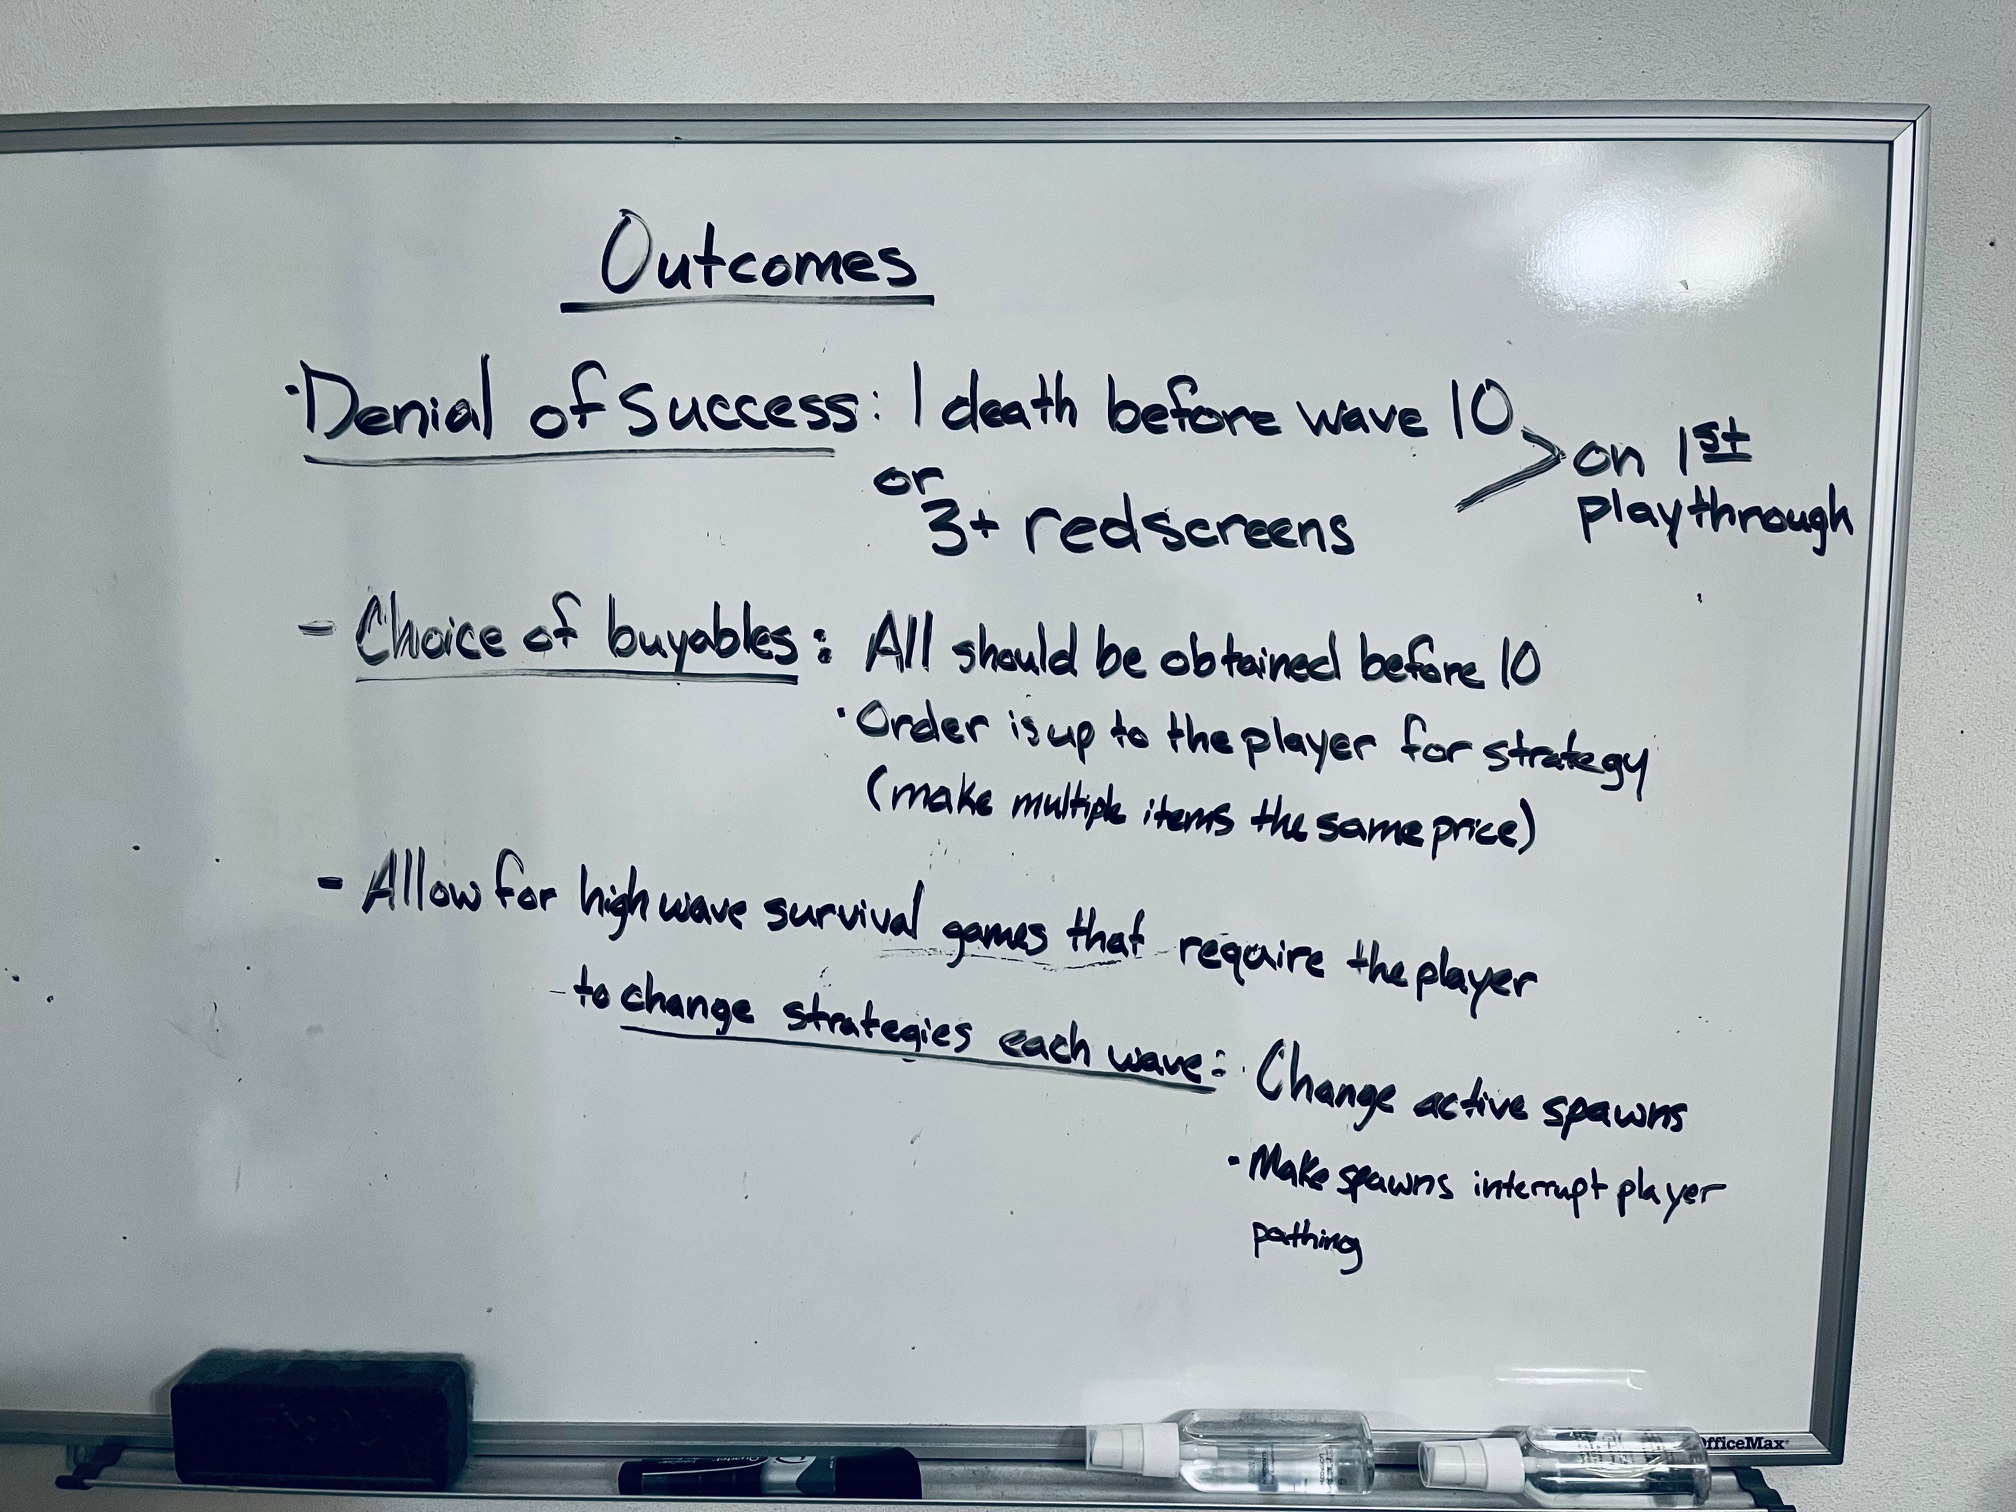 Outcomes
·Denial of success: 1 death before wave 10
or
3+ redscreens
> on 1st
playthrough
- Choice of buyables: All should be obtained before 10
·Order is up to the player for strategy
(make multiple items the same price)
- Allow for high wave survival games that require the player
-to change strategies each wave: ·Change active spawns
·Make spawns interrupt player
pathing
Quartet
OfficeMax